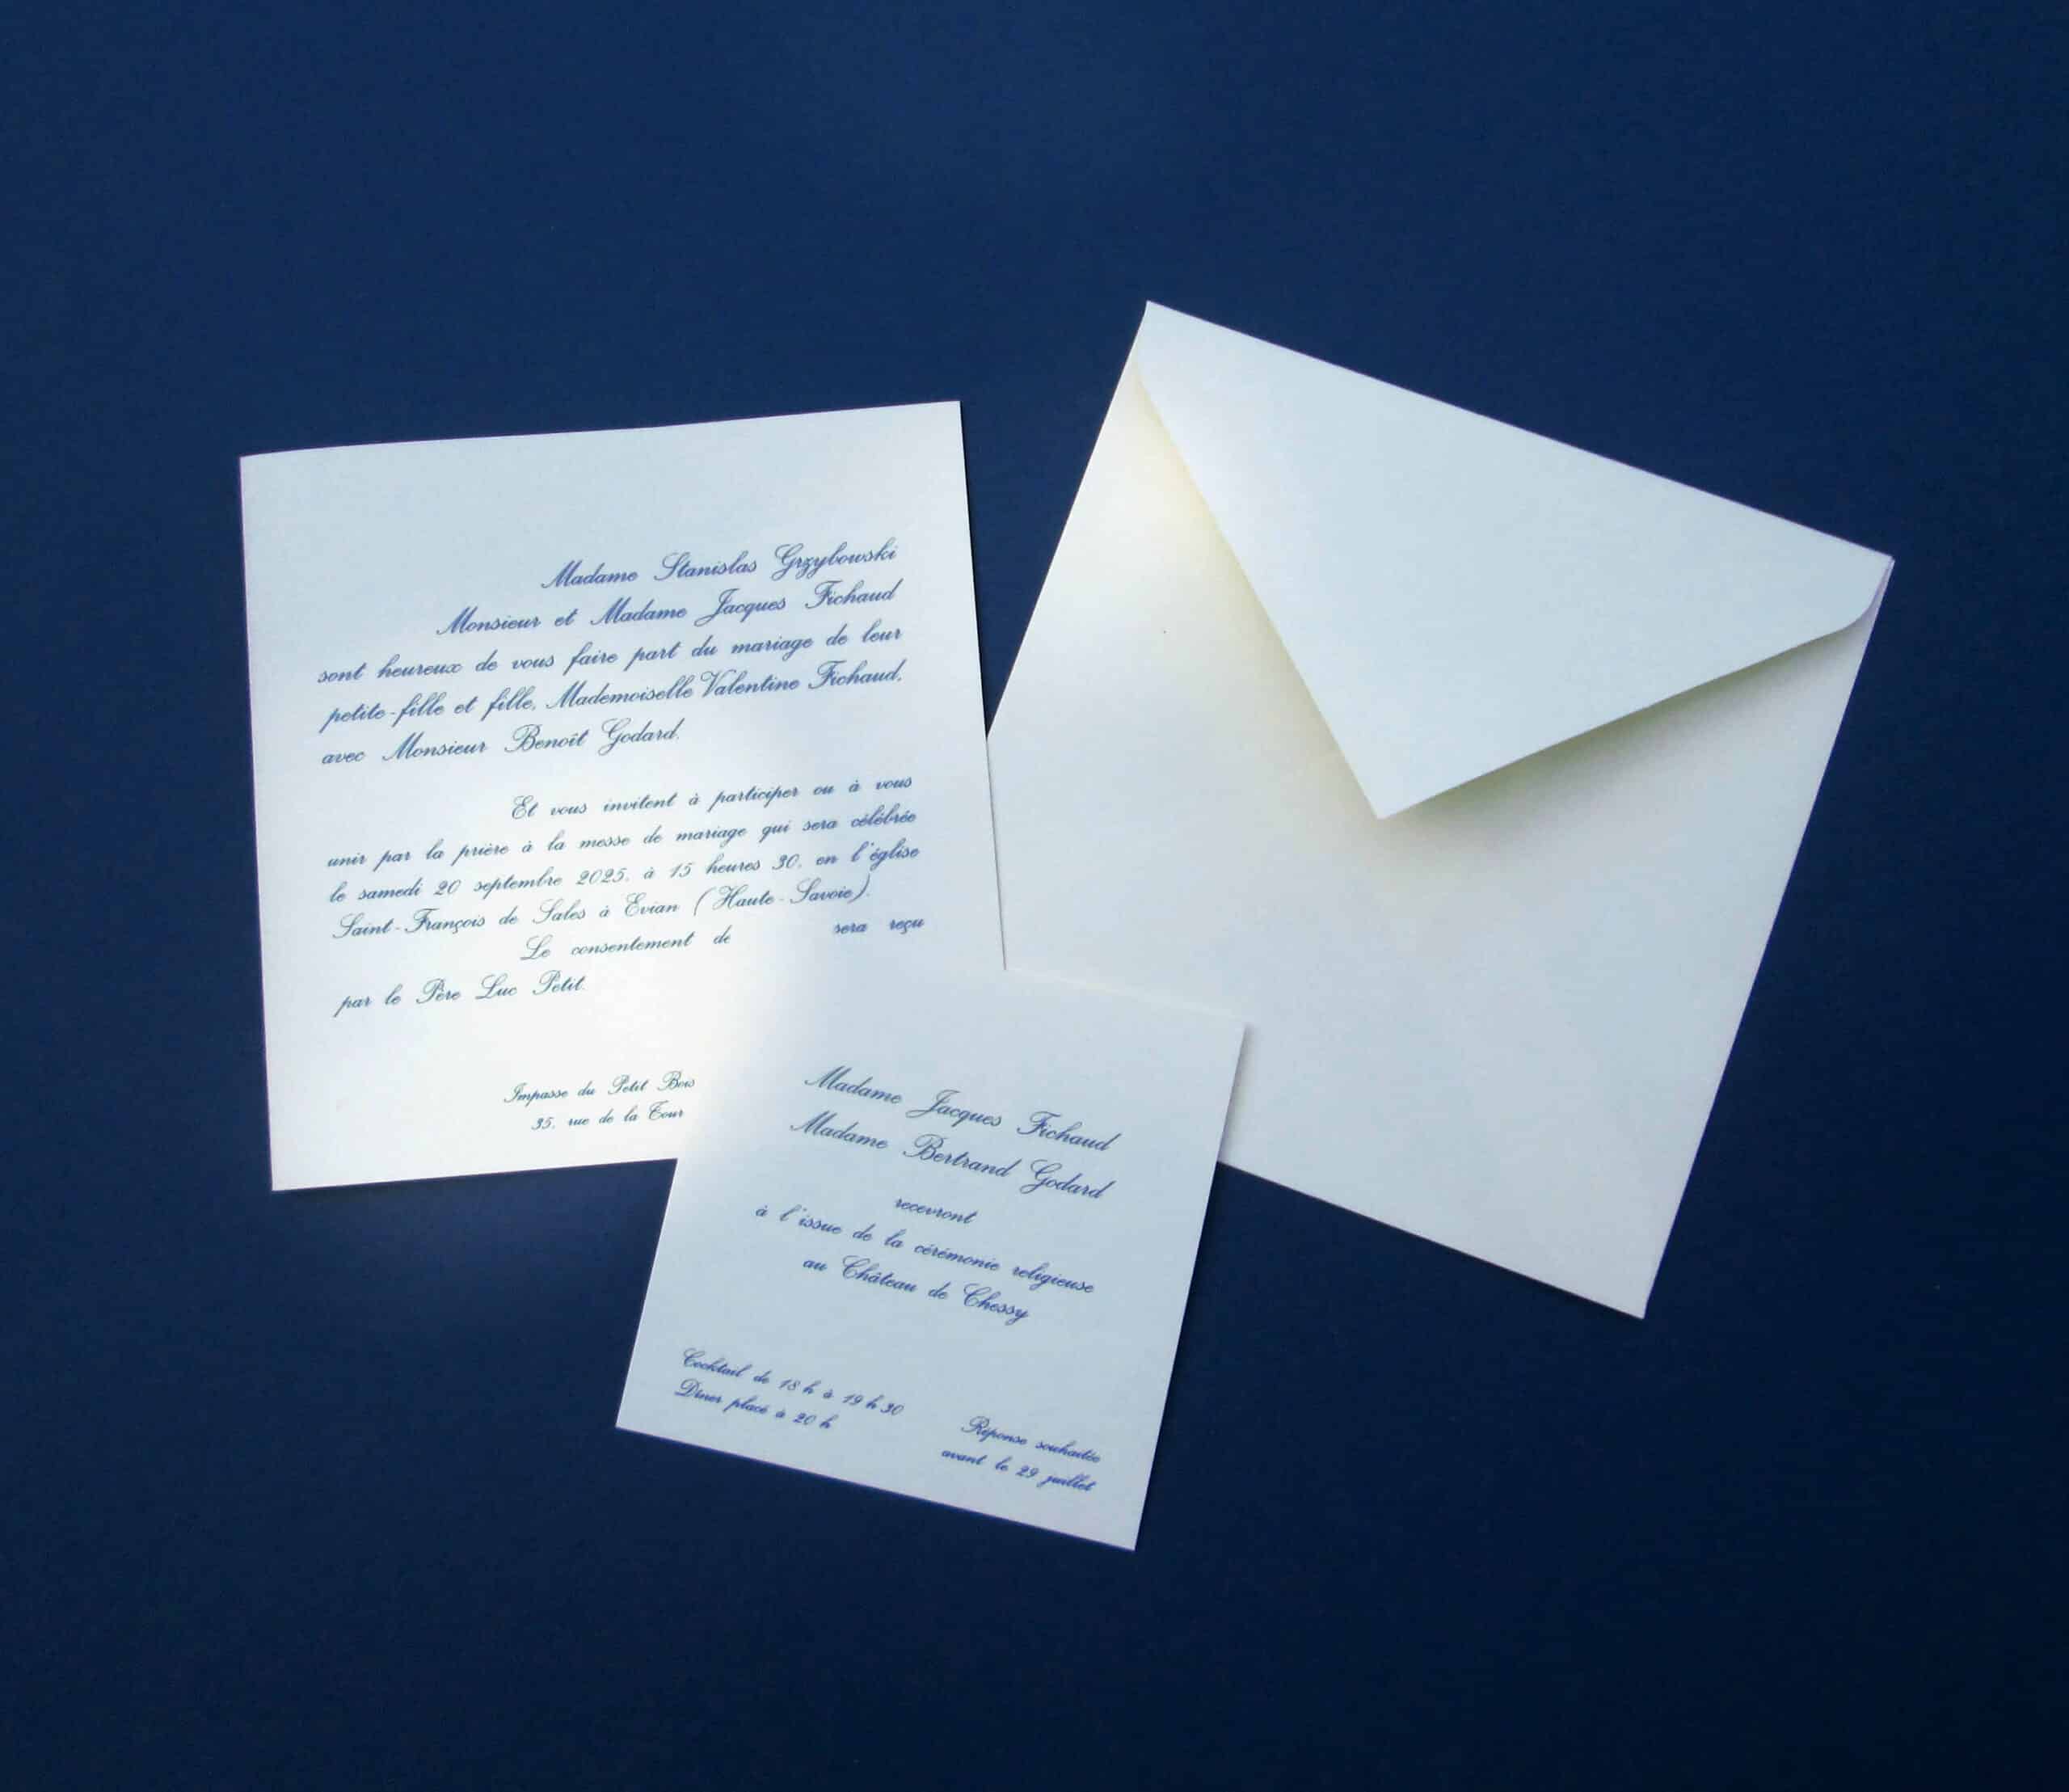 Madame Stanislas Grzybowski
Monsieur et Madame Jacques Fichaud
sont heureux de vous faire part du mariage de leur
petite-fille et fille, Mademoiselle Valentine Fichaud,
avec Monsieur Benoît Godard.
Et vous invitent à participer ou à vous
unir par la prière à la messe de mariage qui sera célébrée
le samedi 20 septembre 2025, à 15 heures 30, en l'église
Saint-François de Sales à Evian (Haute-Savoie).
Le consentement de sera reçu
par le Père Luc Petit.
Impasse du Petit Bois
35, rue de la Tour
Madame Jacques Fichaud
Madame Bertrand Godard
recevront
à l'issue de la cérémonie religieuse
au Château de Chessy
Cocktail de 18 h à 19 h 30
Dîner placé à 20 h
Réponse souhaitée
avant le 29 juillet